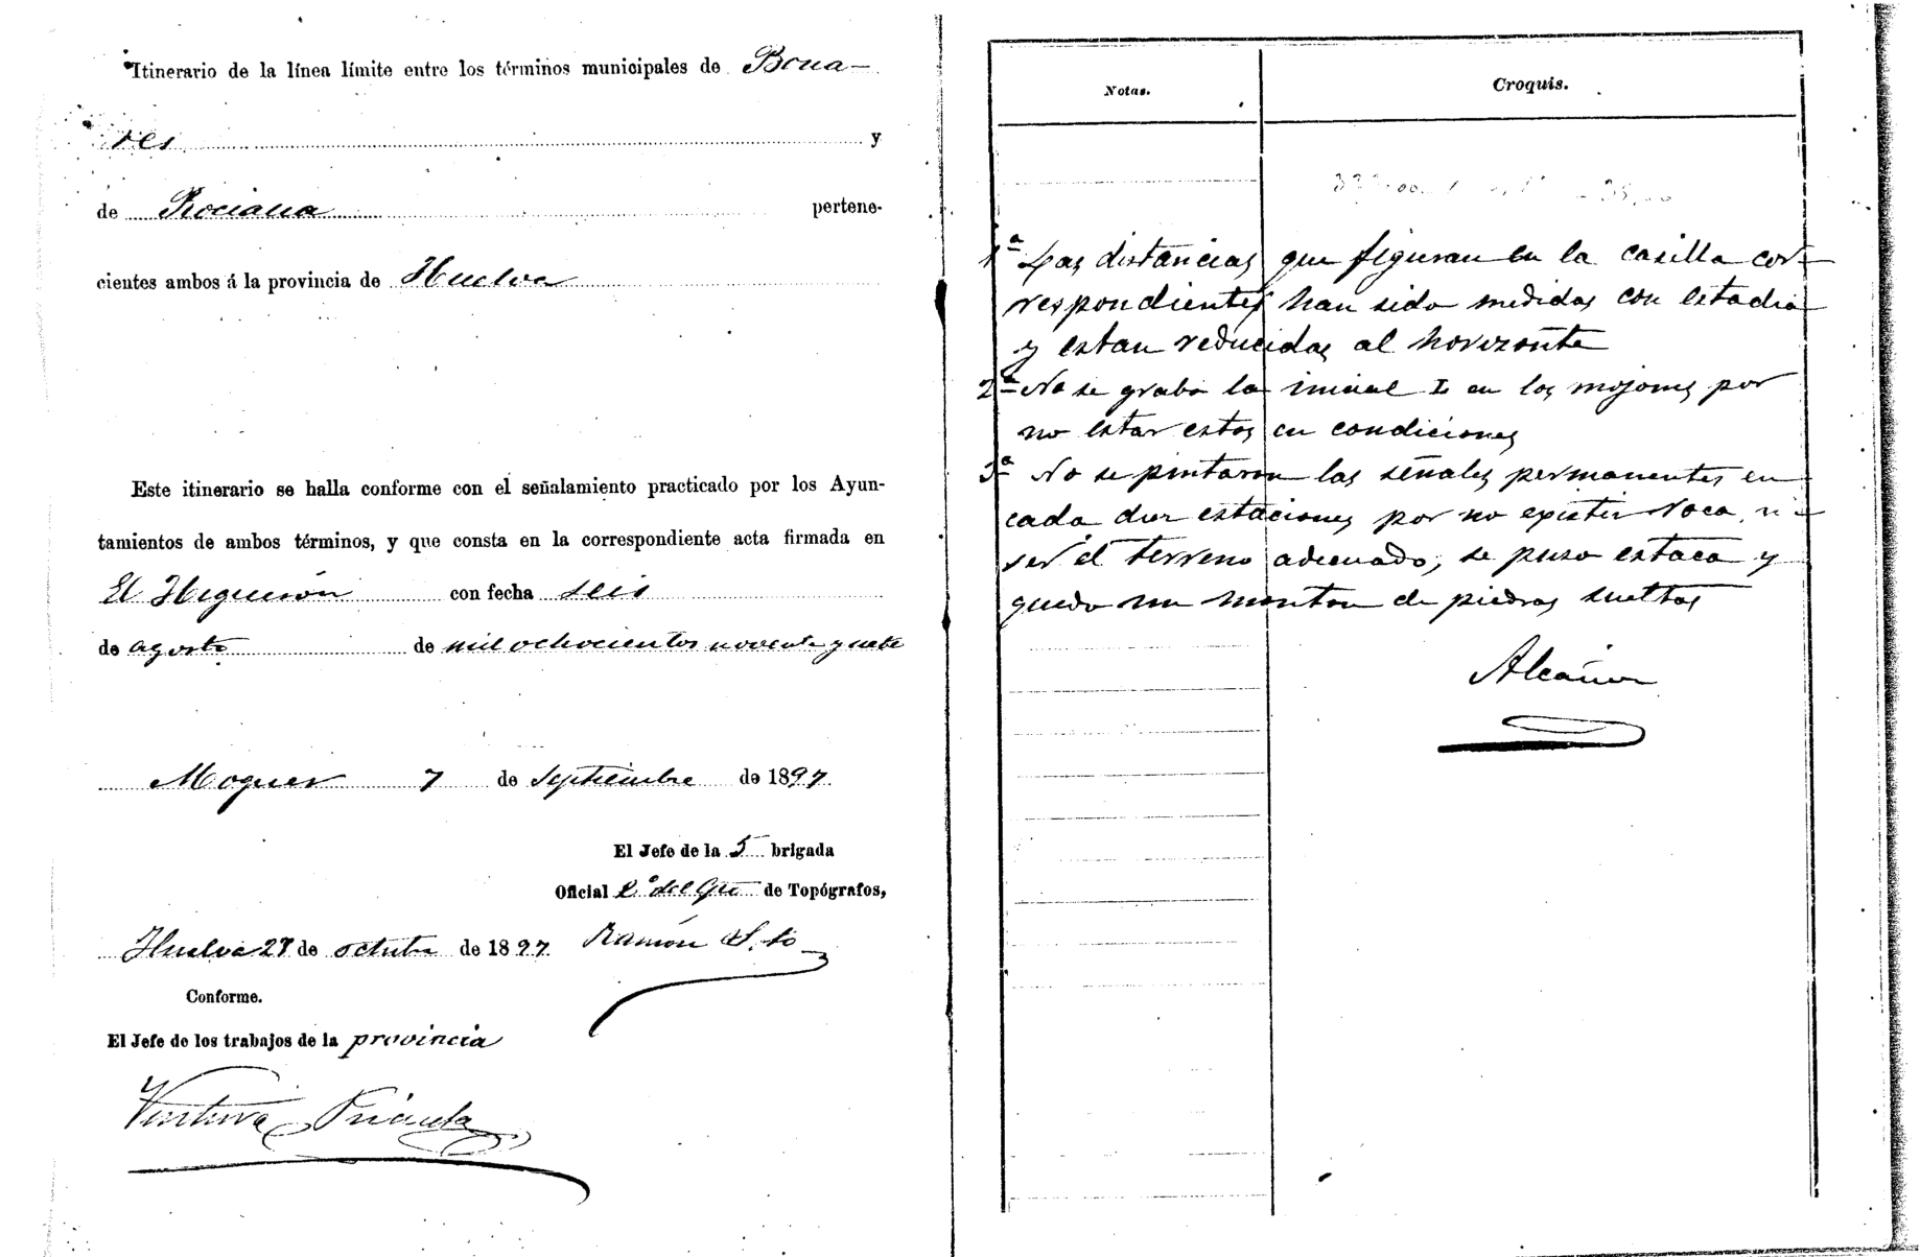 Itinerario de la línea límite entre los términos municipales de Bona-
res y
de Rociana pertene-
cientes ambos á la provincia de Huelva
Este itinerario se halla conforme con el señalamiento practicado por los Ayun-
tamientos de ambos términos, y que consta en la correspondiente acta firmada en
El Higuerón con fecha seis
de agosto de mil ochocientos noventa y siete
Moguer 7 de Septiembre de 1897.
El Jefe de la 5 brigada
Oficial 2º del de Topógrafos,
Huelva 27 de octubre de 1897. Ramón
Conforme.
El Jefe de los trabajos de la provincia
Ventura
Notas. Croquis.
1ª Las distancias que figuran en la casilla cor-
respondientes han sido medidas con estadia
y estan reducidas al horizonte
2ª No se grabó la inicial L en los mojones por
no estar estos en condiciones
3ª No se pintaron las señales permanentes en
cada dos estaciones por no existir roca, ni
ser el terreno adecuado; se puso estaca y
quedo un monton de piedras sueltas